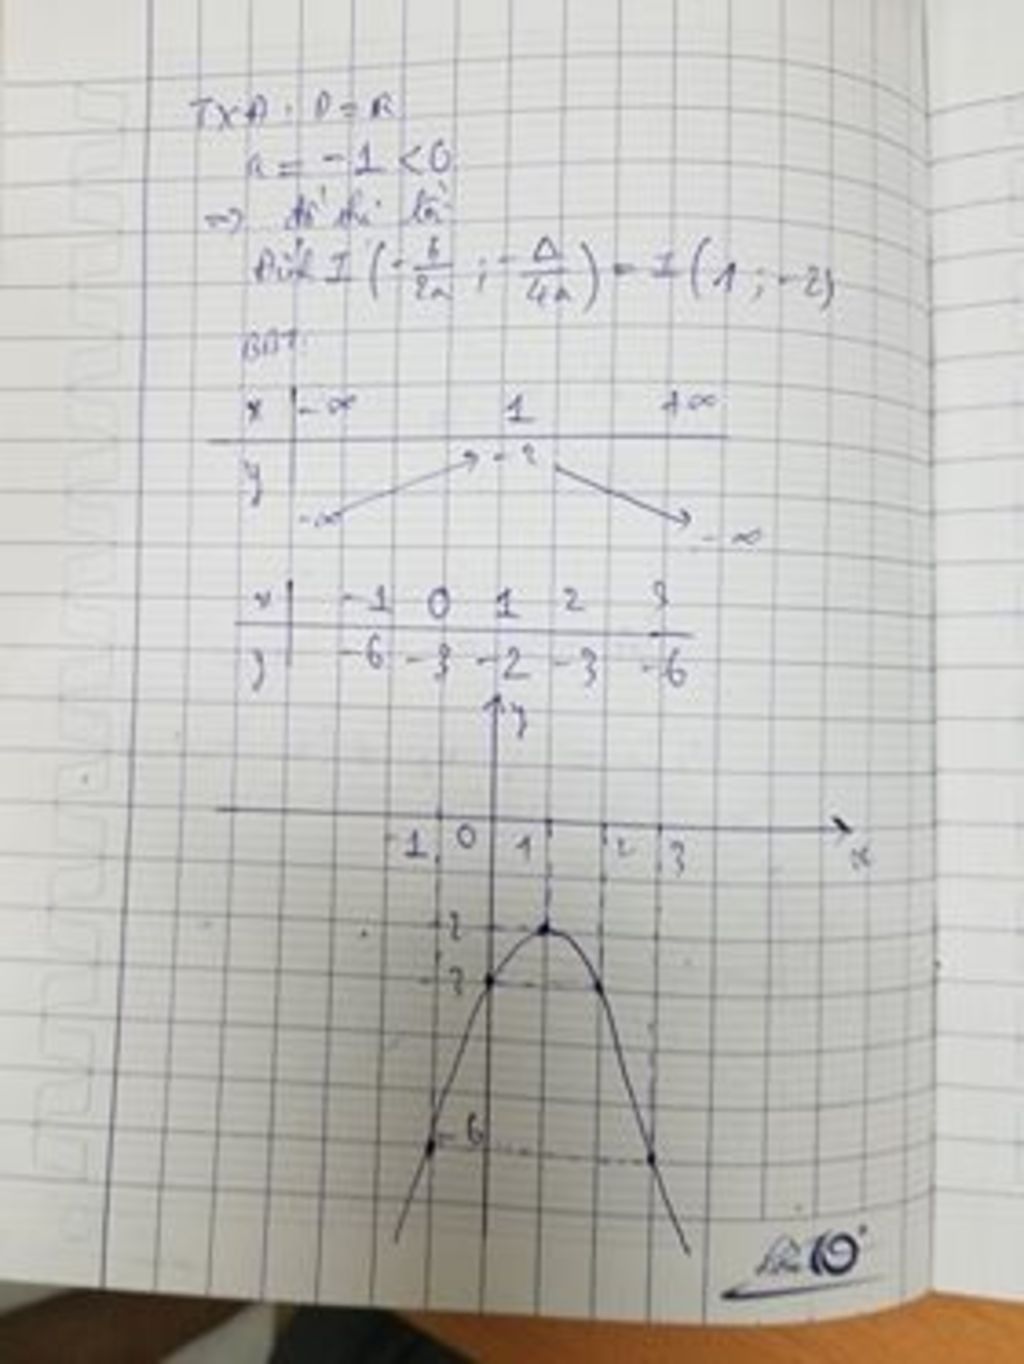 TXĐ: D = R
a = -1 < 0
=> đồ thị lồi
Đỉnh I (-b/2a ; -Δ/4a) = I (1 ; -2)
BBT:
x -∞ 1 +∞
y -∞ -2 -∞
x -1 0 1 2 3
y -6 -3 -2 -3 -6
y
-1 0 1 2 3 x
-2
-3
-6
10